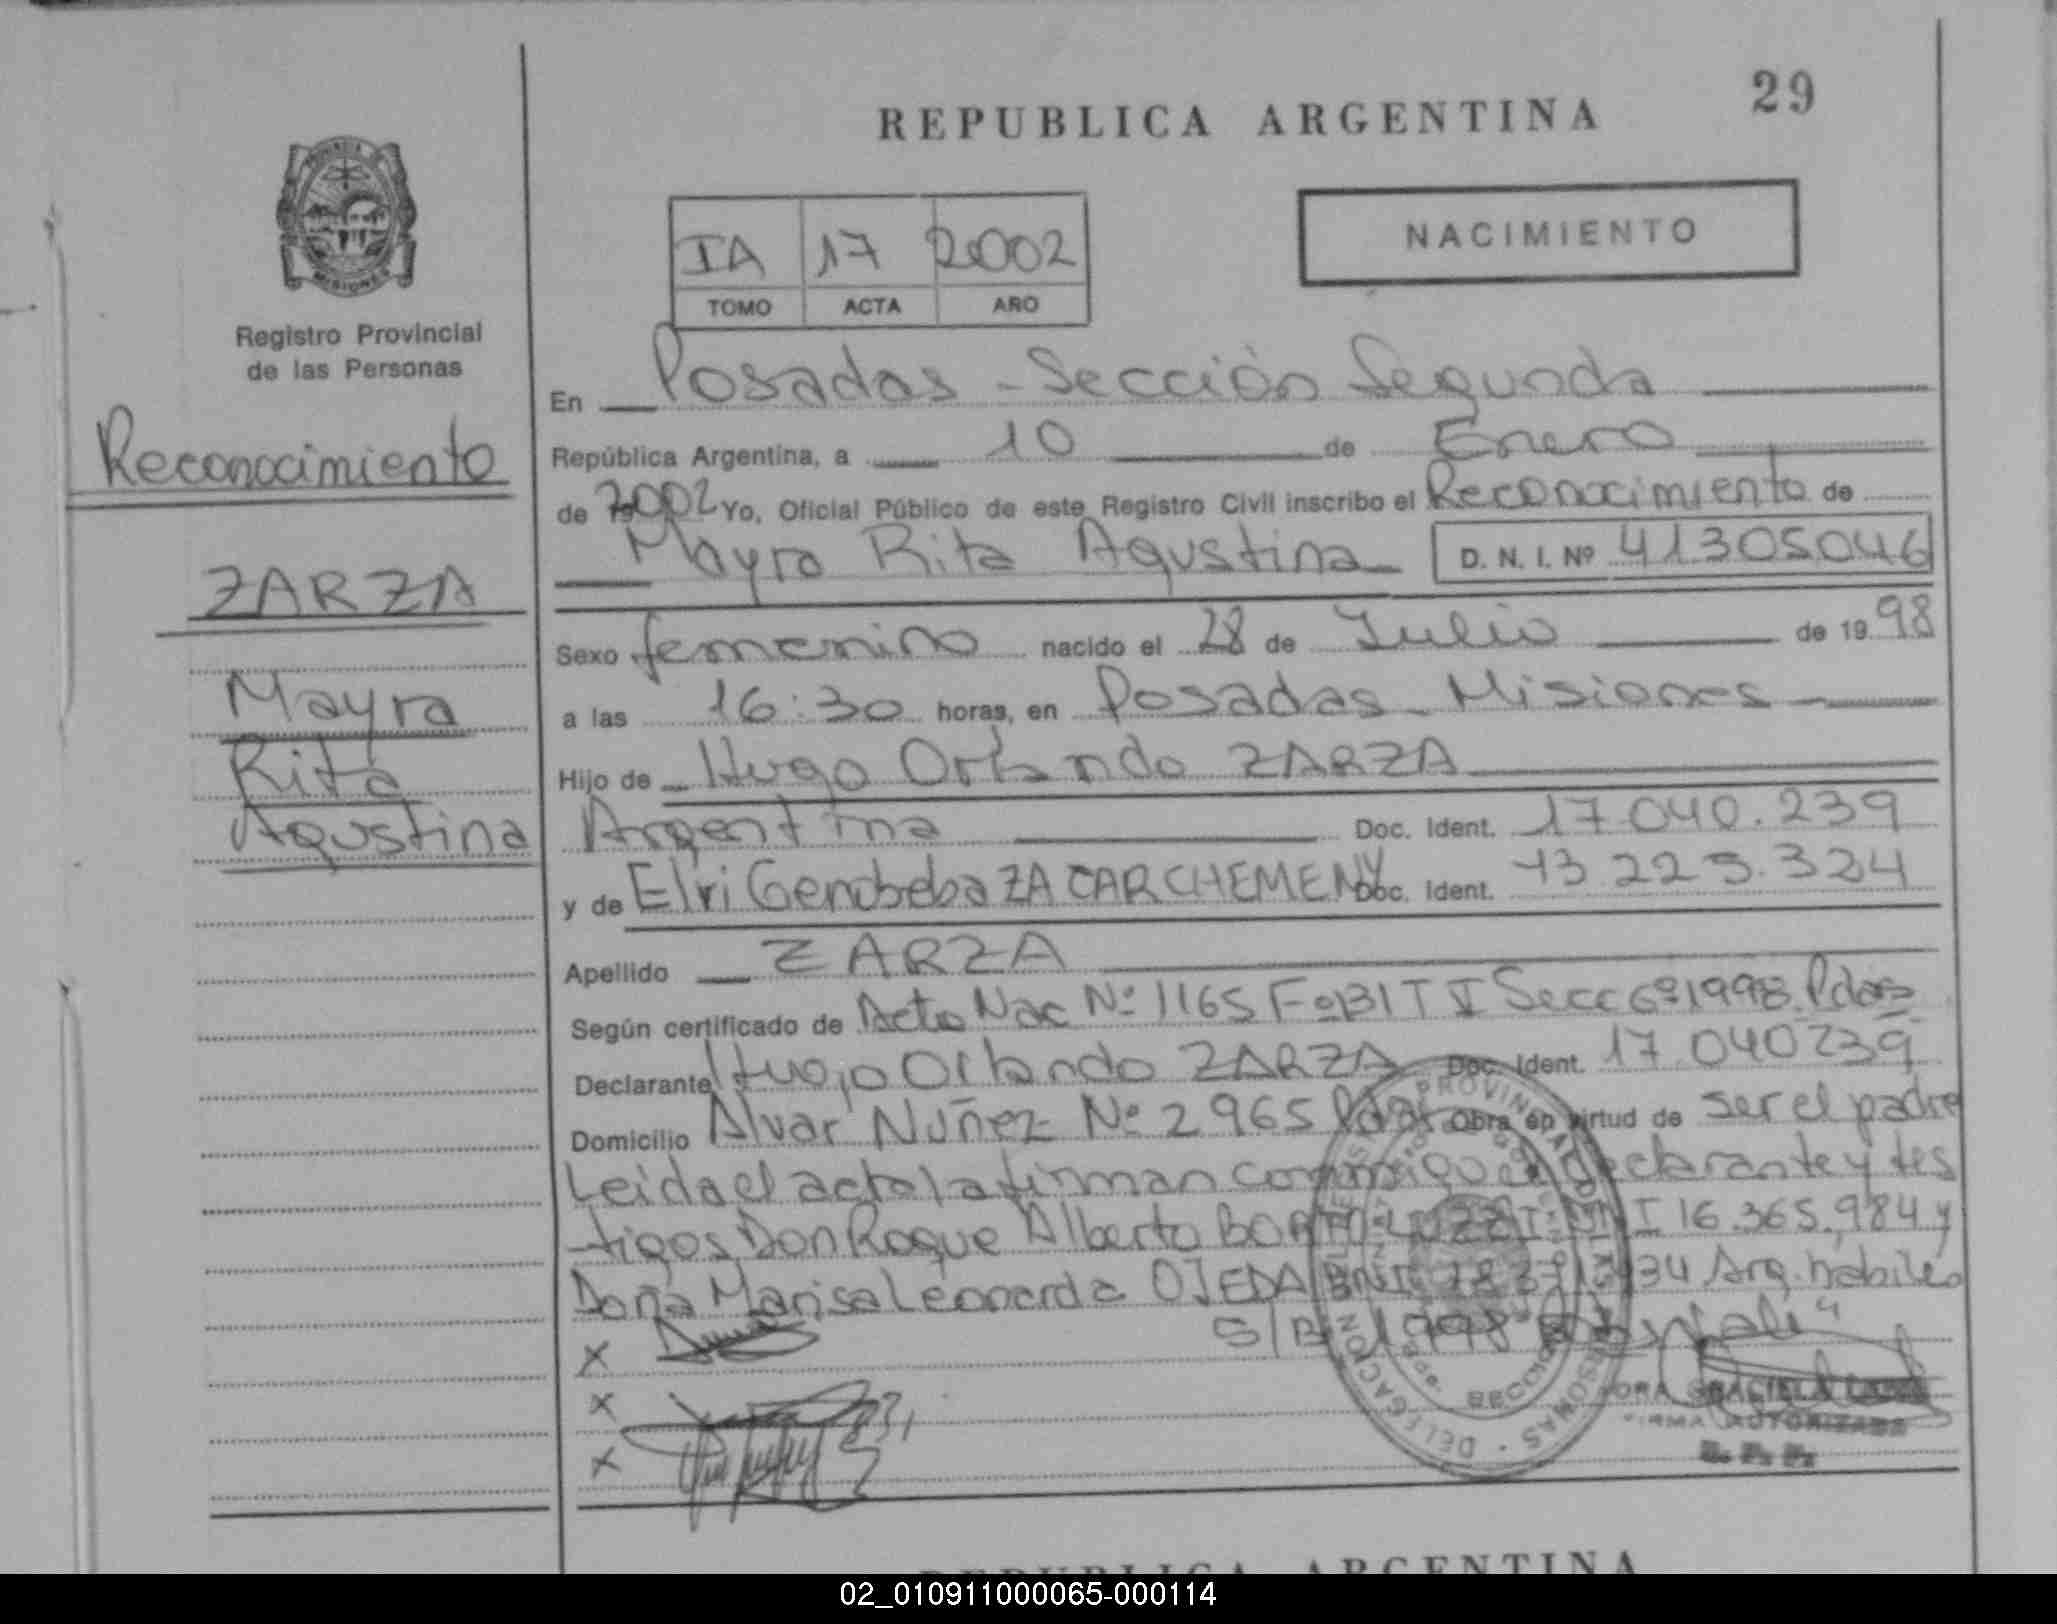 REPUBLICA ARGENTINA
29
PROVINCIA DE
MISIONES
Registro Provincial
de las Personas
IA 17 2002
TOMO ACTA AÑO
NACIMIENTO
Reconocimiento
ZARZA
Mayra
Rita
Agustina
En Posadas - Sección Segunda
República Argentina, a 10 de Enero
de 2002 Yo, Oficial Público de este Registro Civil inscribo el Reconocimiento de
Mayra Rita Agustina D. N. I. Nº 41305046
Sexo femenino nacido el 28 de Julio de 1998
a las 16:30 horas, en Posadas - Misiones
Hijo de Hugo Orlando ZARZA
Argentina Doc. Ident. 17.040.239
y de Elvi Genobeba ZACARCHEMENY Doc. Ident. 13.223.324
Apellido ZARZA
Según certificado de Acta Nac Nº 1165 Fº 131 T I Secc 6º 1998. Pdas
Declarante Hugo Orlando ZARZA Doc. Ident. 17.040239
Domicilio Alvar Nuñez Nº 2965 Pdas Obra en virtud de ser el padre
Leida el acta la firman conmigo el declarante y tes
tigos Don Roque Alberto DNI 16.365.984 y
Doña Marisa Leonarda OJEDA Arg. habiles
S/B 1998
DELEGACION
SECCION
GRACIELA
FIRMA AUTORIZADA
R. P. P.
REPUBLICA ARGENTINA
02_010911000065-000114